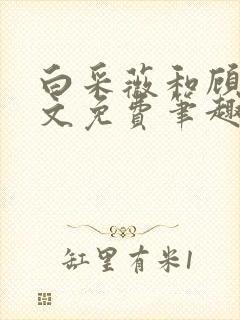 白采薇和顾
文免费笔趣
缸里有米1